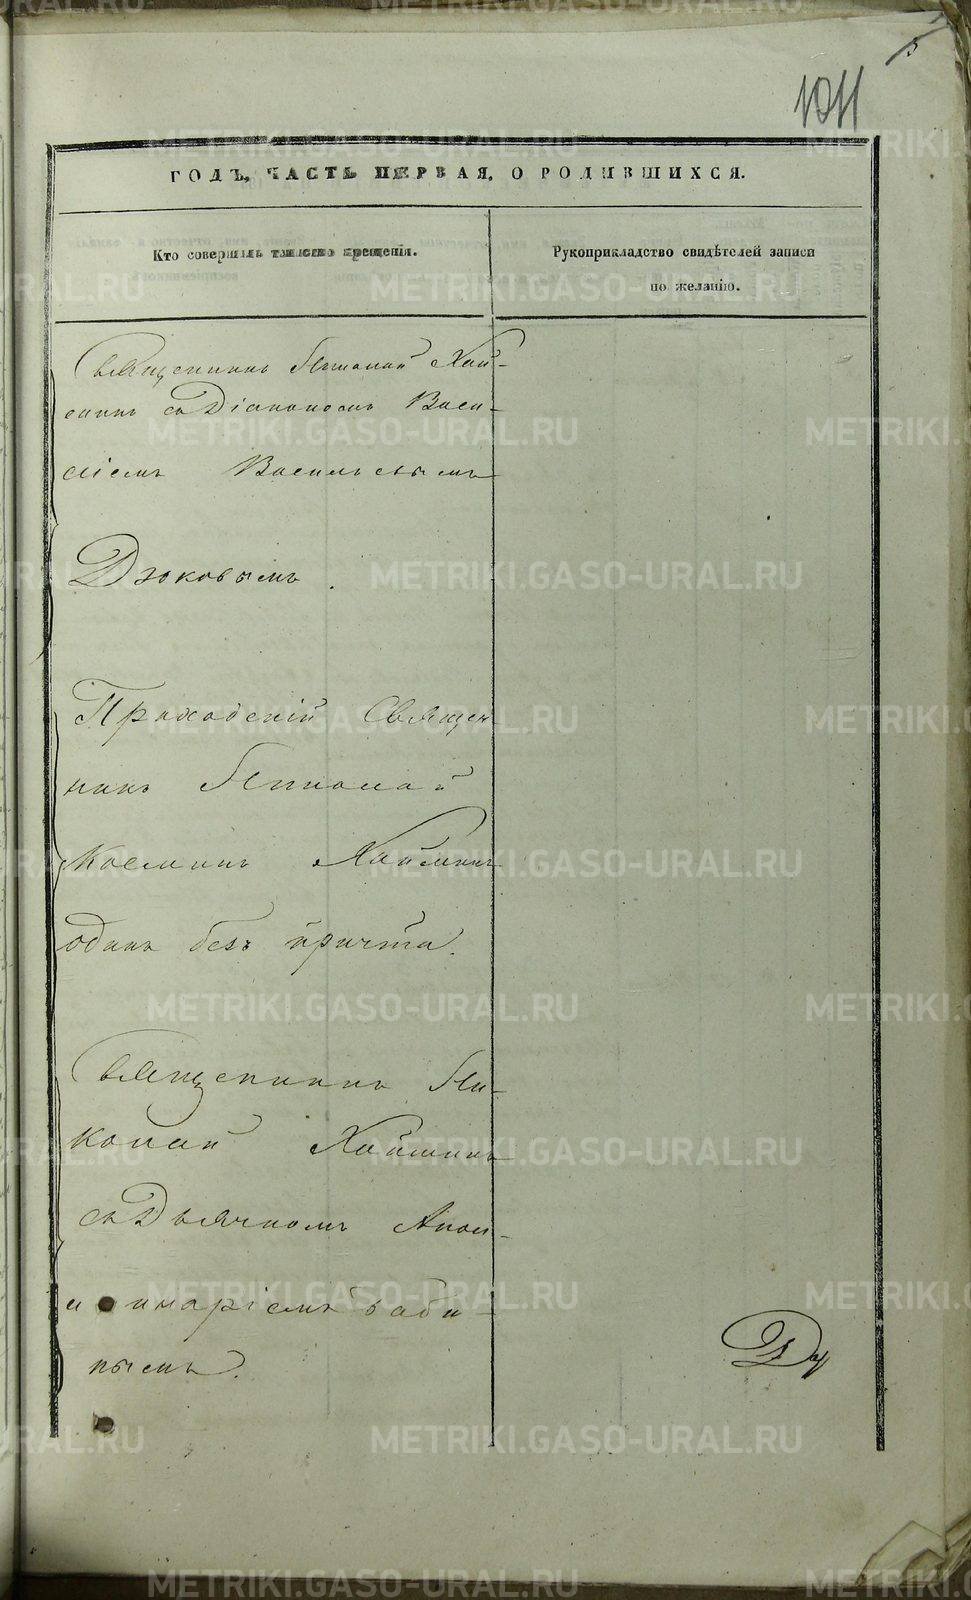 1011
ГОДЪ, ЧАСТЬ ПЕРВАЯ, О РОДИВШИХСЯ.
Кто совершилъ таинство крещенія.
Рукоприкладство свидѣтелей записи
по желанію.
Священникъ Николай Хай-
минъ съ Діакономъ Васи-
ліемъ Васильевымъ
Дюковымъ.
Приходскій Священ
никъ Николай
Косминъ Хайминъ
одинъ безъ причта.
Священникъ Ни-
колай Хайминъ
съ Дьячкомъ Апол-
линаріемъ Баби-
нымъ.
METRIKI.GASO-URAL.RU